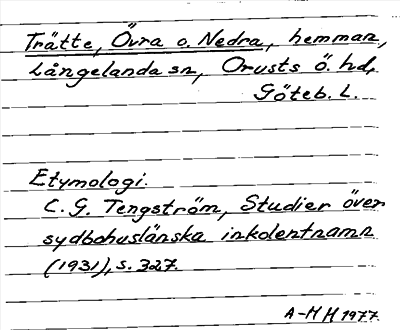 Trätte, Övra o. Nedra, hemman,
Långelanda sn, Orusts ö. hd,
Göteb. L.
Etymologi.
C. G. Tengström, Studier över
sydbohuslänska inkolentnamn
(1931), s. 327.
A-M H 1977